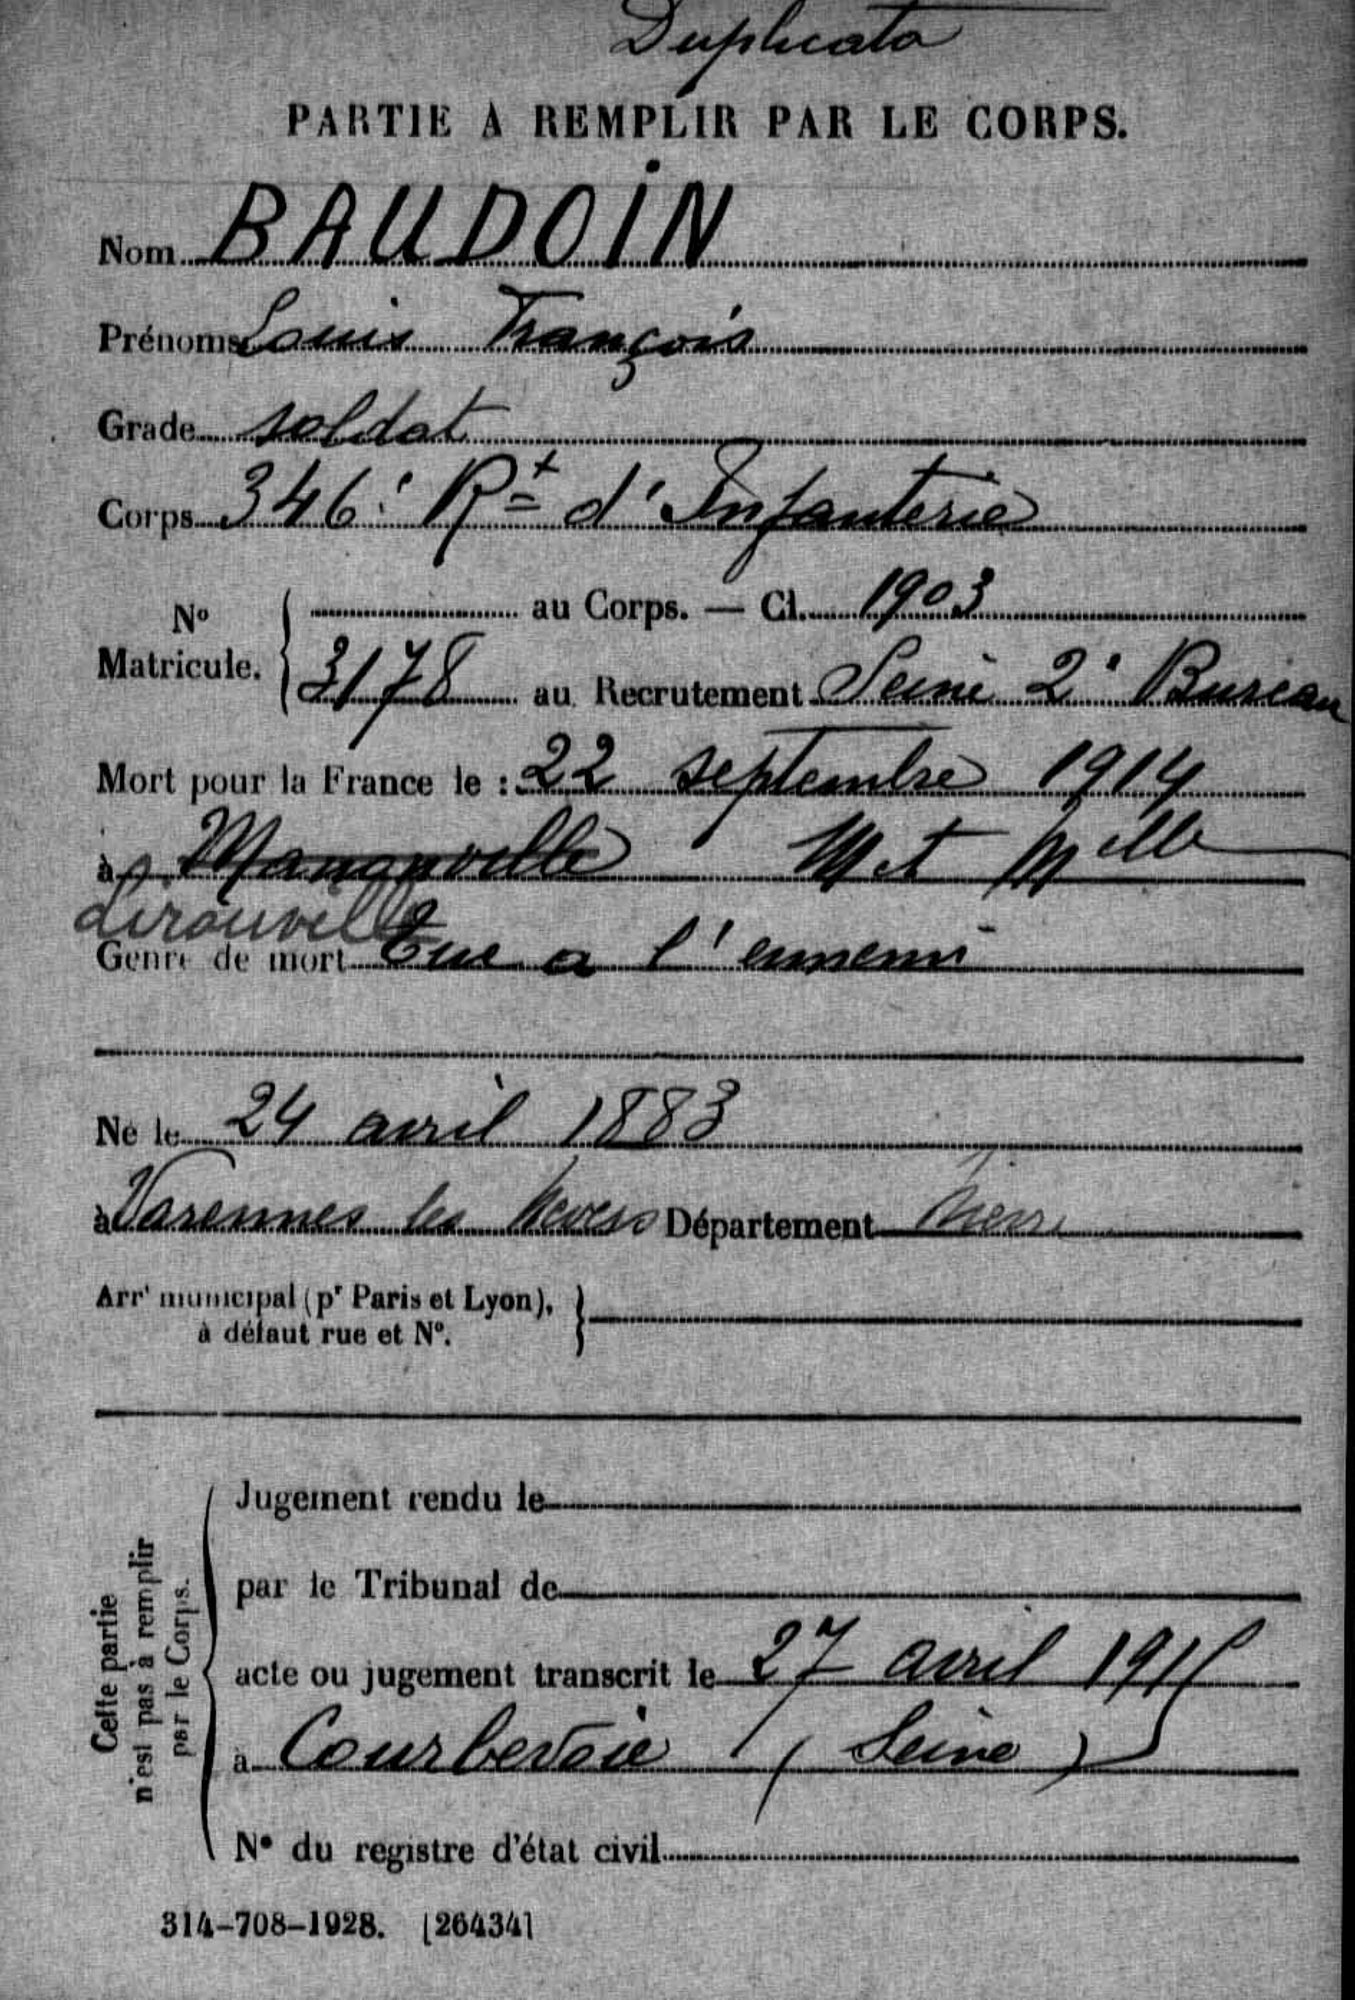 Duplicata
PARTIE A REMPLIR PAR LE CORPS.
Nom BAUDOIN
Prénoms Louis François
Grade soldat
Corps 346e Rt d'Infanterie
No Matricule. au Corps. — Cl. 1903
3178 au Recrutement Seine 2e Bureau
Mort pour la France le : 22 septembre 1914
à Mamanville Mt Mlle
Lirouville
Genre de mort Tué a l'ennemi
Né le 24 avril 1883
à Varennes les Nevers Département Nièvre
Arrt municipal (pr Paris et Lyon),
à défaut rue et No.
Cette partie
n'est pas à remplir
par le Corps.
Jugement rendu le
par le Tribunal de
acte ou jugement transcrit le 27 avril 1915
à Courbevoie (Seine)
No du registre d'état civil
314-708-1928. [26434]